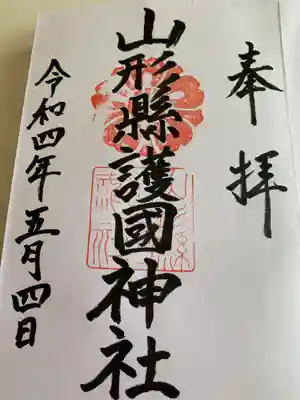 奉拝
山形縣護國神社
令和四年五月四日